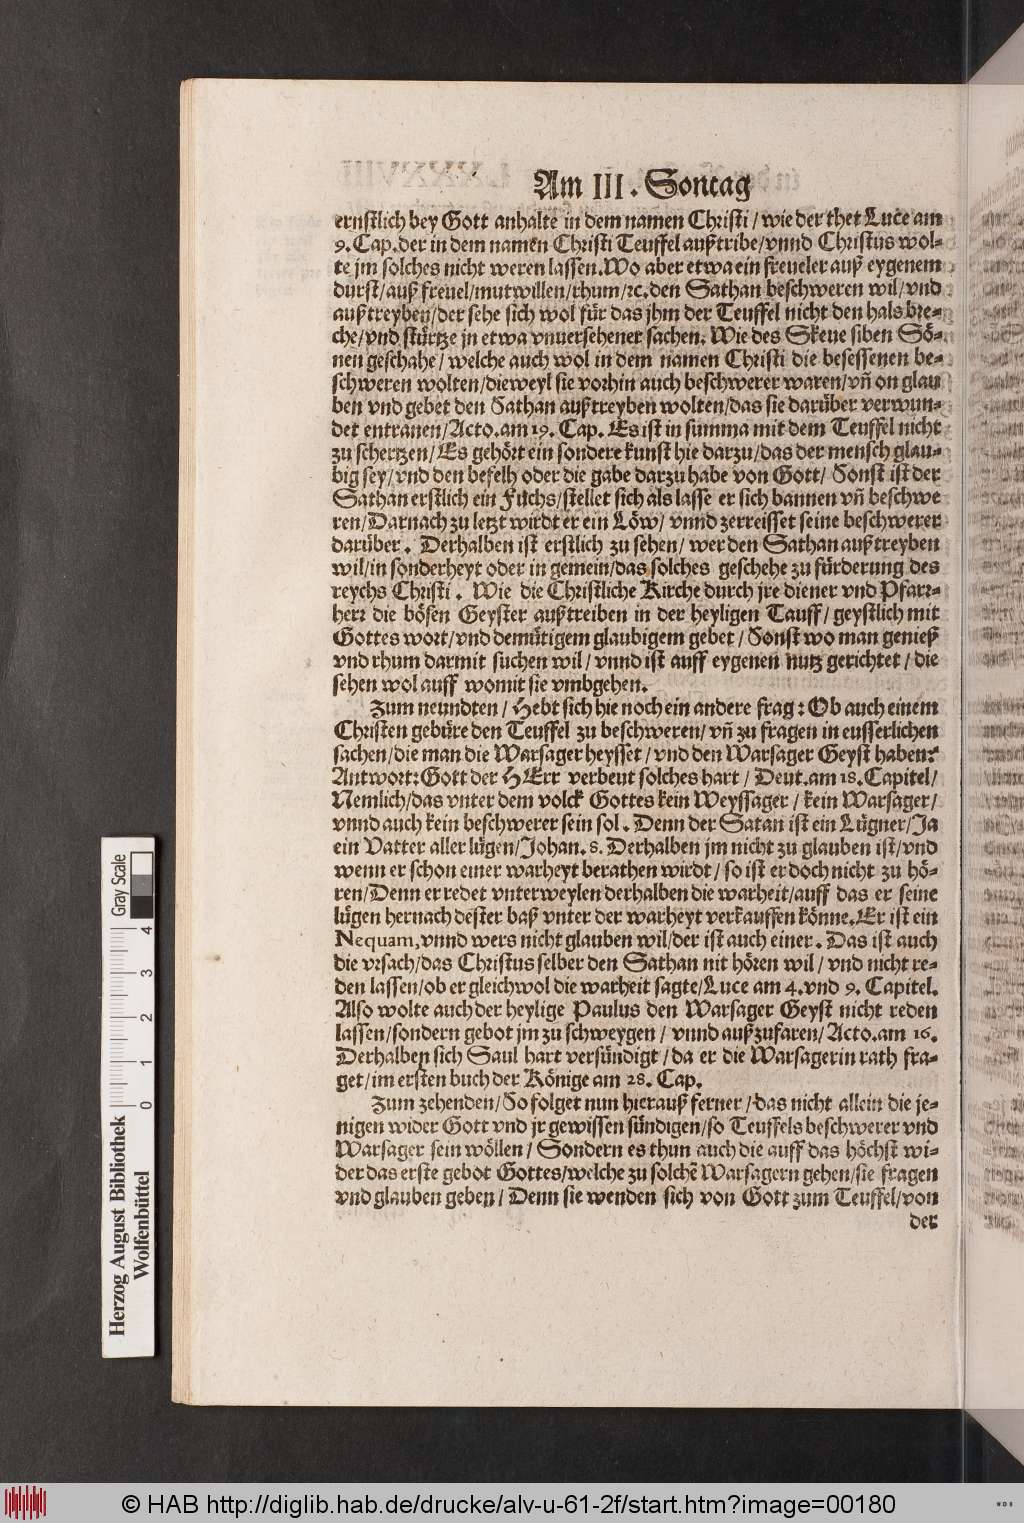 Am III. Sontag
ernstlich bey Gott anhalte in dem namen Christi / wie der thet Luce am
9. Cap. der in dem namen Christi Teuffel außtribe/vnnd Christus wol-
te jm solches nicht weren lassen. Wo aber etwa ein freueler auß eygenem
durst/auß freuel/mutwillen/rhum/ꝛc. den Sathan beschweren wil/vnd
außtreyben/der sehe sich wol für das jhm der Teuffel nicht den hals bre-
che/vnd stürtze jn etwa vnuersehener sachen. Wie des Skeue siben Sö-
nen geschahe/ welche auch wol in dem namen Christi die besessenen be-
schweren wolten/dieweyl sie vorhin auch beschwerer waren/vñ on glau
ben vnd gebet den Sathan außtreyben wolten/das sie darüber verwun-
det entranen/Acto. am 19. Cap. Es ist in summa mit dem Teuffel nicht
zu schertzen/Es gehört ein sondere kunst hie darzu/das der mensch glau-
big sey/vnd den befelh oder die gabe darzu habe von Gott/ Sonst ist der
Sathan erstlich ein Fuchs/stellet sich als lasse er sich bannen vñ beschwe
ren/Darnach zu letzt wirdt er ein Löw/ vnnd zerreisset seine beschwerer
darüber. Derhalben ist erstlich zu sehen/ wer den Sathan außtreyben
wil/in sonderheyt oder in gemein/das solches geschehe zu fürderung des
reychs Christi. Wie die Christliche Kirche durch jre diener vnd Pfarr-
herr die bösen Geyster außtreiben in der heyligen Tauff/ geystlich mit
Gottes wort/vnd demütigem glaubigem gebet / Sonst wo man genieß
vnd rhum darmit suchen wil / vnnd ist auff eygenen nutz gerichtet / die
sehen wol auff womit sie vmbgehen.
Zum neundten / Hebt sich hie noch ein andere frag: Ob auch einem
Christen gebüre den Teuffel zu beschweren/vñ zu fragen in eusserlichen
sachen/die man die Warsager heysset / vnd den Warsager Geyst haben?
Antwort: Gott der HErr verbeut solches hart / Deut. am 18. Capitel/
Nemlich/das vnter dem volck Gottes kein Weyssager / kein Warsager/
vnnd auch kein beschwerer sein sol. Denn der Satan ist ein Lügner/Ja
ein Vatter aller lügen/Johan. 8. Derhalben jm nicht zu glauben ist/vnd
wenn er schon einer warheyt berathen wirdt / so ist er doch nicht zu hö-
ren/Denn er redet vnterweylen derhalben die warheit/auff das er seine
lügen hernach dester baß vnter der warheyt verkauffen könne. Er ist ein
Nequam, vnnd wers nicht glauben wil/der ist auch einer. Das ist auch
die vrsach/das Christus selber den Sathan nit hören wil / vnd nicht re-
den lassen/ob er gleichwol die warheit sagte/Luce am 4. vnd 9. Capitel.
Also wolte auch der heylige Paulus den Warsager Geyst nicht reden
lassen/sondern gebot jm zu schweygen / vnnd außzufaren/Acto. am 16.
Derhalben sich Saul hart versündigt / da er die Warsagerin rath fra-
get/im ersten buch der Könige am 28. Cap.
Zum zehenden/So folget nun hierauß ferner / das nicht allein die je-
nigen wider Gott vnd jr gewissen sündigen/so Teuffels beschwerer vnd
Warsager sein wöllen / Sondern es thun auch die auff das höchst wi-
der das erste gebot Gottes/welche zu solchẽ Warsagern gehen/sie fragen
vnd glauben geben / Denn sie wenden sich von Gott zum Teuffel/von
der
Herzog August Bibliothek
Wolfenbüttel
0 1 2 3 4
Gray Scale
© HAB http://diglib.hab.de/drucke/alv-u-61-2f/start.htm?image=00180